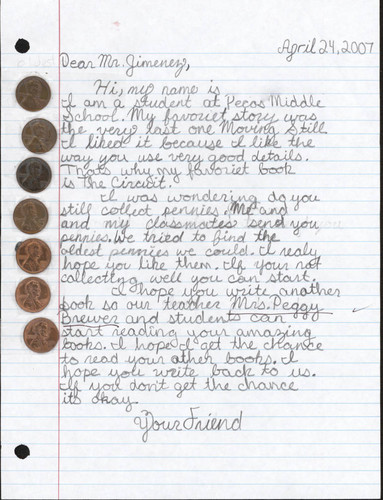 April 24, 2007
Dear Mr. Jimenez,
Hi, my name is
I am a student at Pecos Middle
School. My favoriet story was
the very last one Moving Still.
I liked it because I like the
way you use very good details.
Thats why my favoriet book
is The Circuit.
I was wondering do you
still collect pennies. Me and
and my classmates send you
pennies. We tried to find the
oldest pennies we could. I realy
hope you like them. If your not
collecting well you can start.
I hope you write another
book so our teacher Mrs. Peggy
Brewer and students can
start reading your amazing
books. I hope I get the chance
to read your other books. I
hope you write back to us.
If you don't get the chance
its okay.
Your Friend